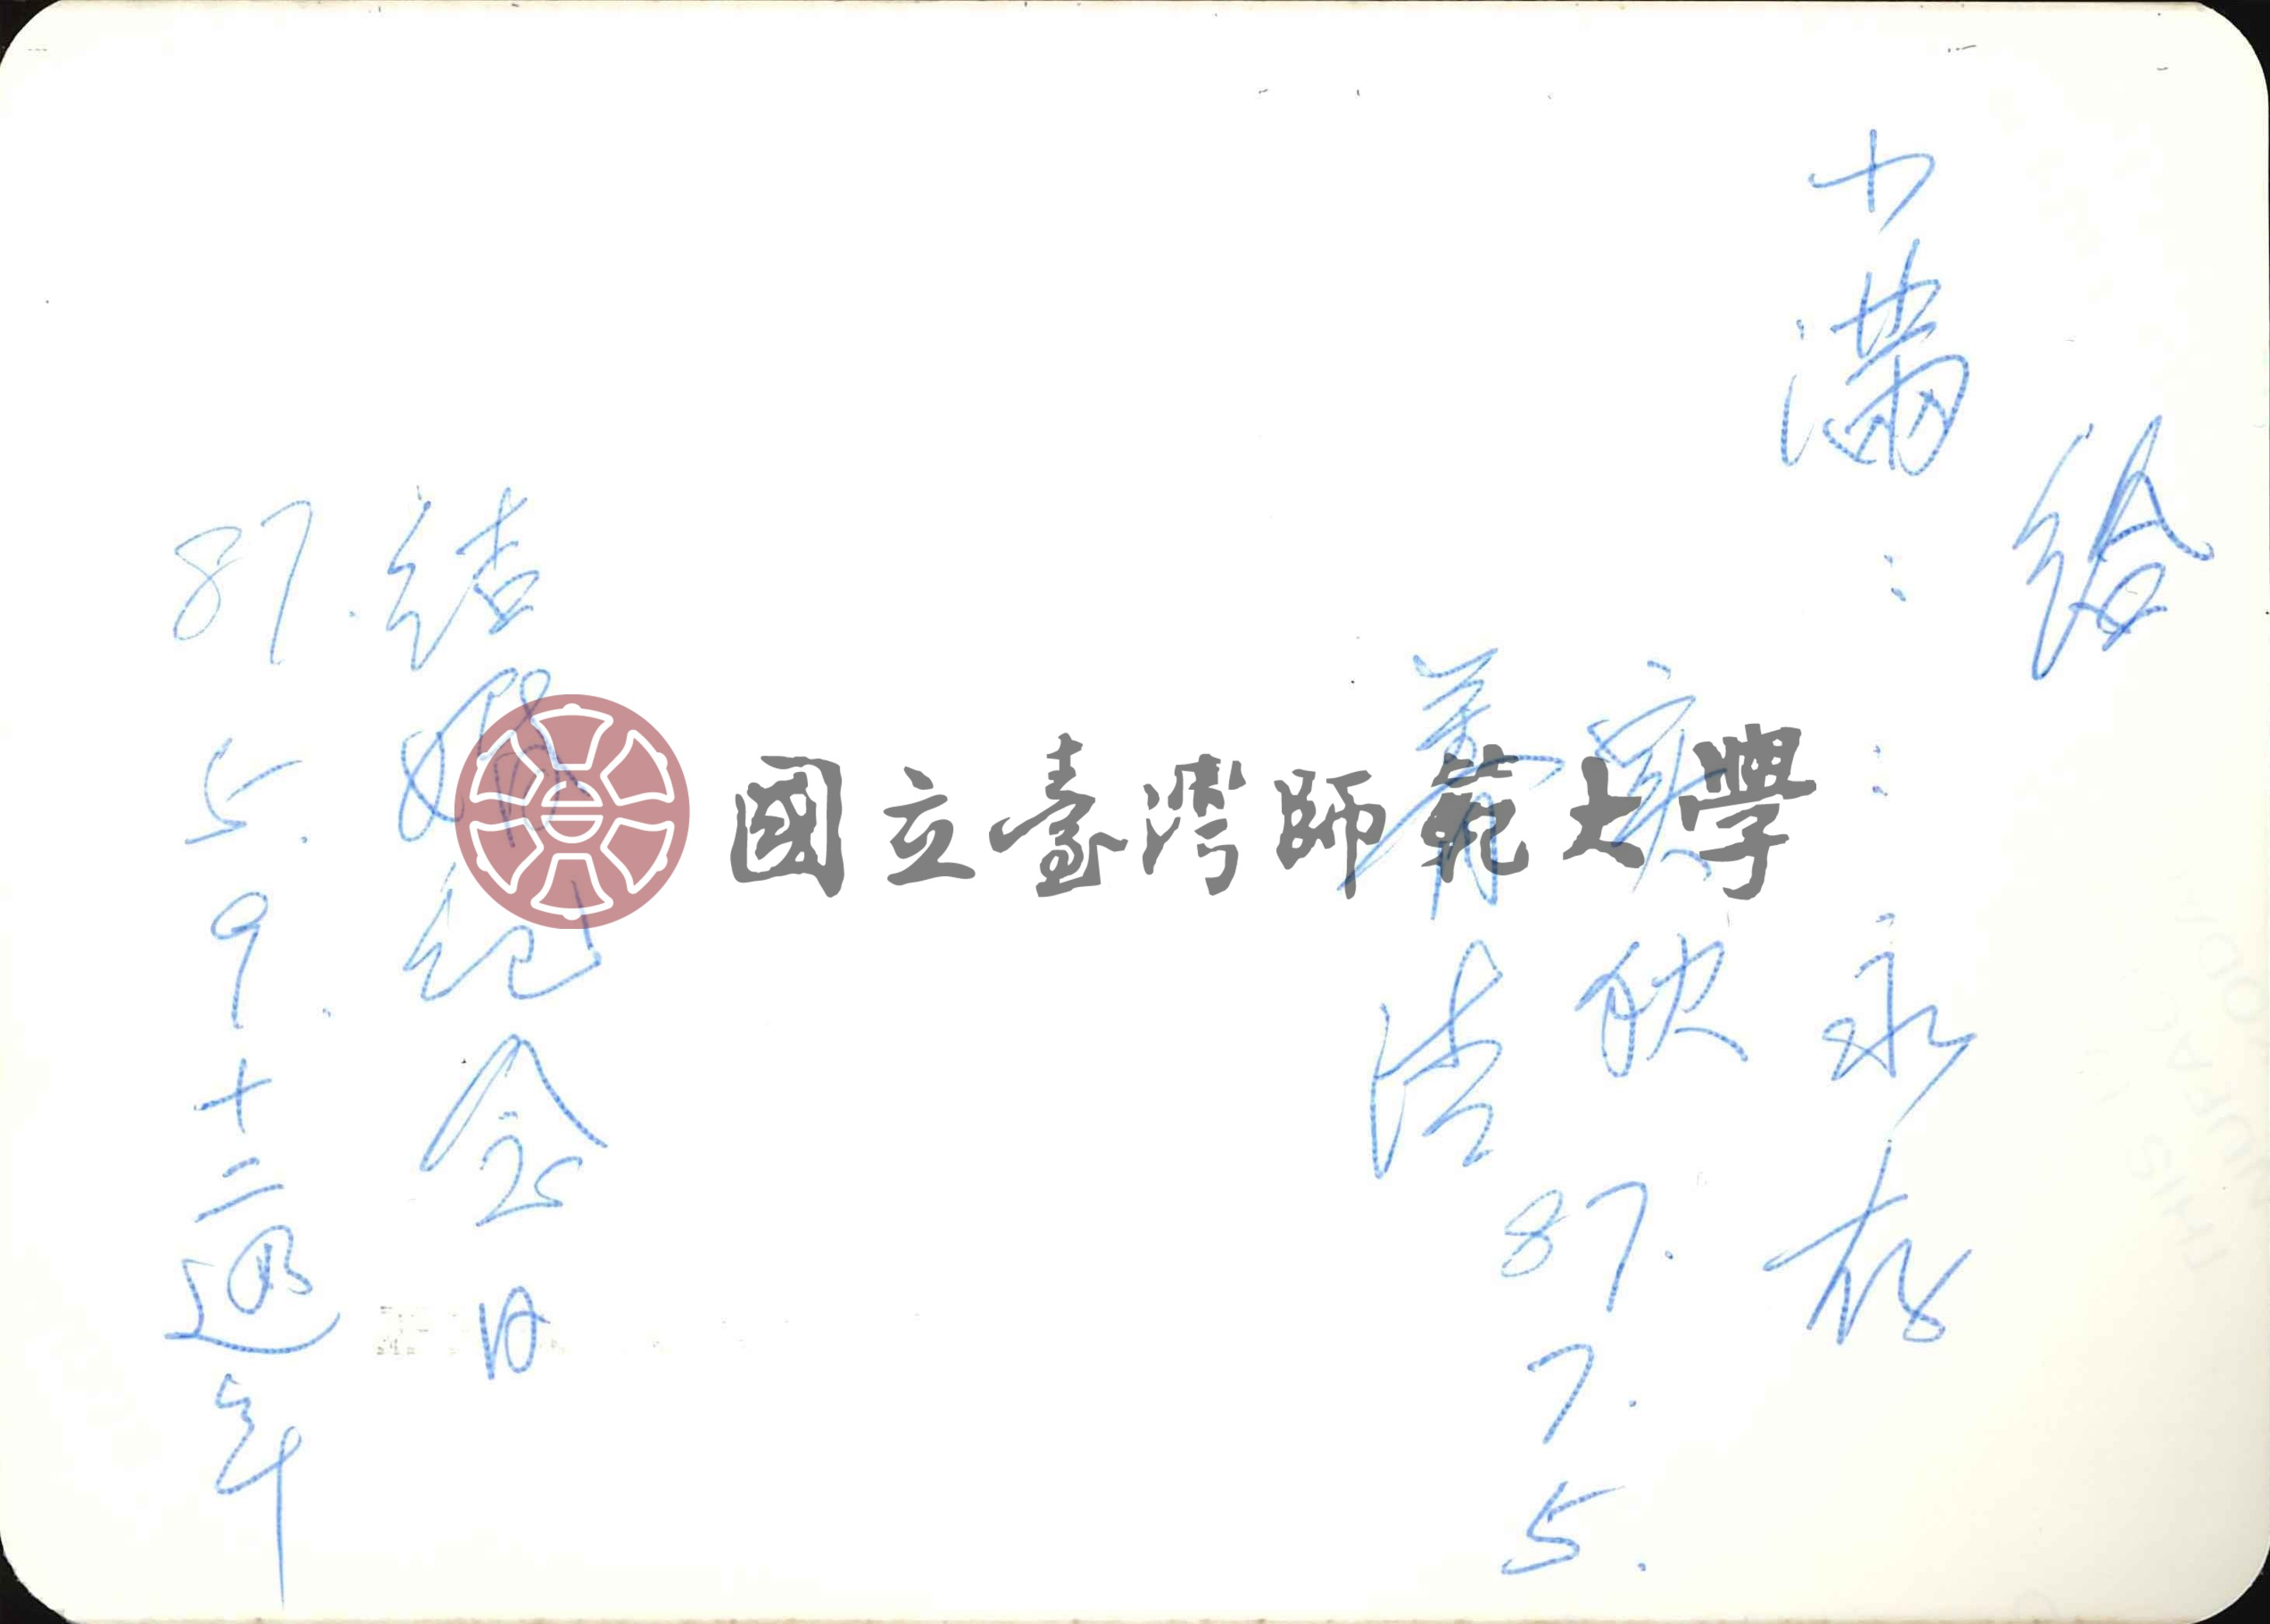 給
小滿：
：永存
欽
華清
87.7.5.
結婚紀念日
87.5.9.十二週年
國立臺灣師範大學